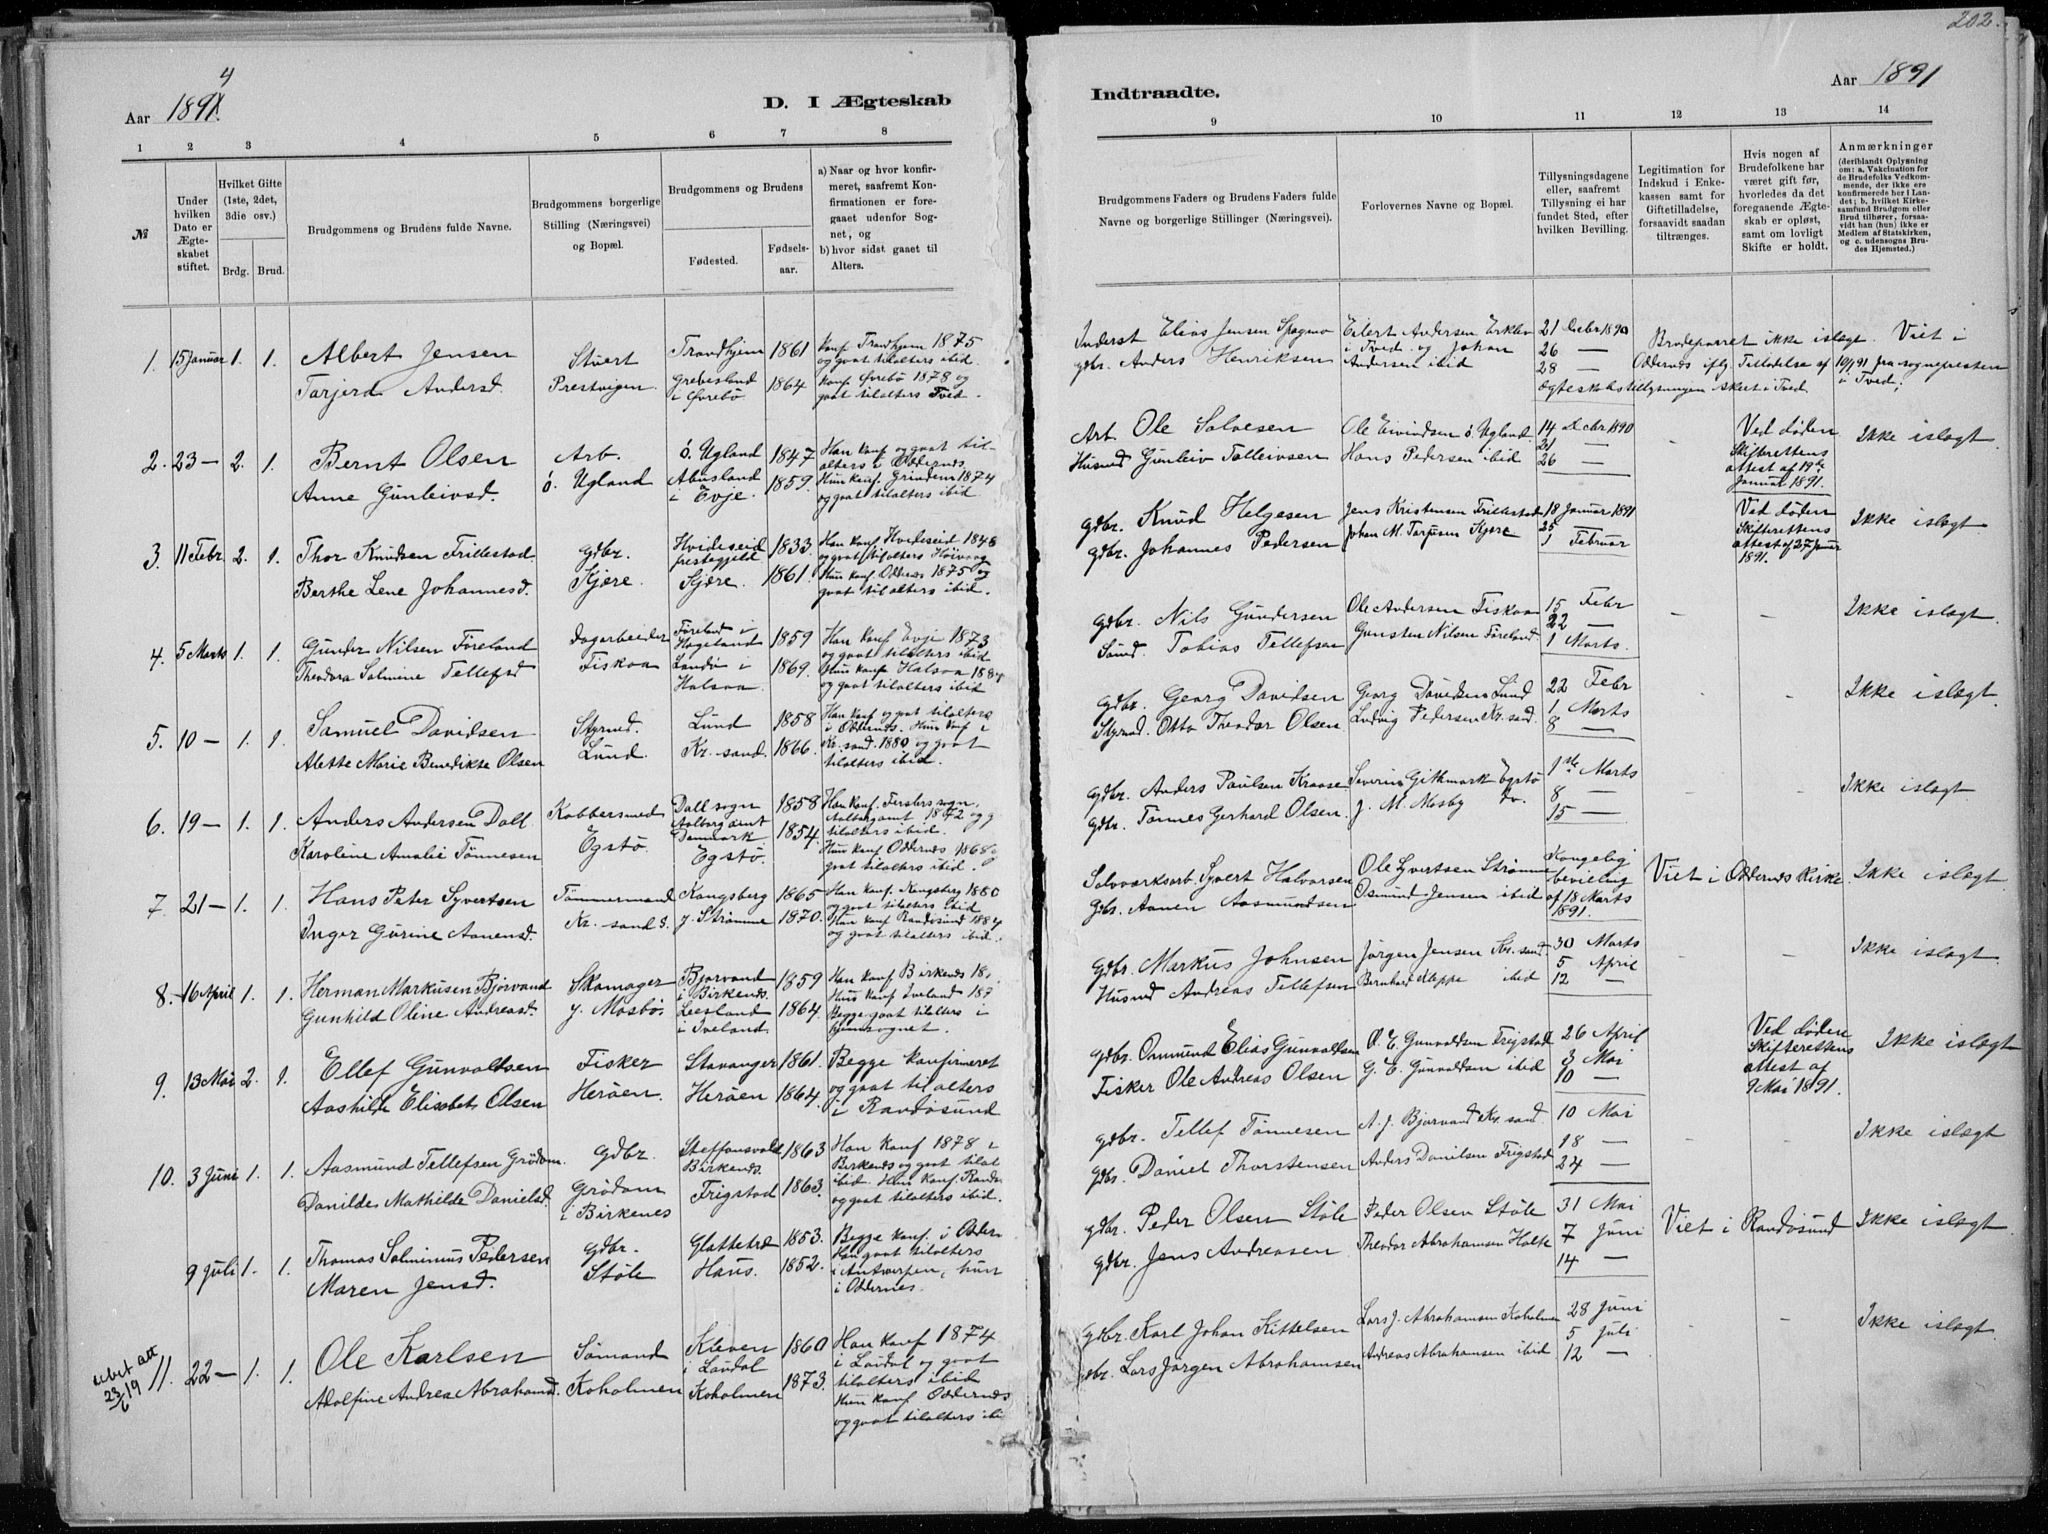 202.
Aar 1891. 4
D. I Ægteskab
Indtraadte.
Aar 1891
1 2 3 4 5 6 7 8
9 10 11 12 13 14
№
Under hvilken Dato er Ægteskabet stiftet.
Hvilket Gifte (1ste, 2det, 3die osv.)
Brdg. Brud.
Brudgommens og Brudens fulde Navne.
Brudgommens borgerlige Stilling (Næringsvei) og Bopæl.
Brudgommens og Brudens
Fødested.
Fødselsaar.
a) Naar og hvor konfirmeret, saafremt Konfirmationen er foregaaet udenfor Sognet, og
b) hvor sidst gaaet til Alters.
Brudgommens Faders og Brudens Faders fulde Navne og borgerlige Stillinger (Næringsvei).
Forlovernes Navne og Bopæl.
Tillysningsdagene eller, saafremt Tillysning ei har fundet Sted, efter hvilken Bevilling.
Legitimation for Indskud i Enkekassen samt for Giftetilladelse, forsaavidt saadan tiltrænges.
Hvis nogen af Brudefolkene har været gift før, hvorledes da det foregaaende Ægteskab er opløst, samt om lovligt Skifte er holdt.
Anmærkninger
(deriblandt Oplysning om: a. Vakcination for de Brudefolks Vedkommende, der ikke ere konfirmerede her i Landet; b. hvilket Kirkesamfund Brudgom eller Brud tilhører, forsaavidt han (hun) ikke er Medlem af Statskirken, og c. udensogns Brudes Hjemsted.)
1. 15 Januar 1. 1.
Albert Jensen
Tarjerd Andersd.
Stuert
Prestvigen.
Trondhjem 1861
Grevesland i Øvrebö 1864
Konf Trondhjem 1875
og gaat til alters ibid.
Konf Øvrebö 1878 og
gaat til alters Tved.
Inderst Elias Jensen Spogmo
gdbr. Anders Henriksen
Eilert Andersen Erklev
i Tved og Johan
Andersen ibid
21 Decbr 1890
26 —
28 —
Brudeparret ikke i slægt. Viet i
Oddernes iflg. Tilladelse af 10/1 91 fra sognepresten
Ægteskabstillysningen skeet i Tved. i Tved;
2. 23 — 2. 1.
Bernt Olsen
Anne Gunleivsd.
Arb.
ö. Ugland
ö. Ugland 1847
Abusland
i Evje. 1859.
Han konf og gaat til-
alters i Oddernes
Hun konf. Grindem 1874
og gaat til alters ibid.
Arb. Ole Salvesen
Husmd Gunleiv Tolleivsen
Ole Eivindsen ö. Ugland
Hans Pedersen ibid
14 Decbr 1890
21 —
26 —
Ved døden
Skifterettens
attest af 19de
Januar 1891.
Ikke i slægt.
3. 11 Febr 2. 1.
Thor Knudsen Frillestad
Berthe Lene Johannesd.
gdbr.
Kjære.
Hvideseid
prestegjeld 1833.
Kjære. 1861.
Han konf Hvideseid 1848
og gaat til alters Höivaag
Hun konf. Oddernes 1875 og
gaat til alters ibid.
gdbr. Knud Helgesen
gdbr. Johannes Pedersen
Jens Kristensen Frillestad
Johan M. Torjusen Kjære
18 Januar 1891
25 —
1 Februar
Ved døden
Skifterettens
attest af 27 Januar
1891.
Ikke i slægt
4. 5 Marts 1. 1.
Gunder Nilsen Föreland
Theodora Salmine Tellefsd
Dagarbeider
Fiskaa
Föreland i
Hægeland 1859
Landö i
Halsaa. 1869.
Han konf Evje 1873
og gaat til alters ibid
Hun konf Halsaa 1884
og gaat til alters ibid
gdbr. Nils Gundersen
Sömd. Tobias Tellefsen
Ole Andersen Fiskaa
Gunsten Nilsen Föreland.
15 Febr
22 —
1 Marts.
Ikke i slægt
5. 10 — 1. 1.
Samuel Davidsen
Alette Marie Benedikte Olsen
Styrmd.
Lund.
Lund 1858
Kr. sand. 1866.
Han konf og gaat til alters
i Oddernes. Hun konf i
Kr. sand. 1880 og gaat
til alters ibid.
gdbr. Georg Davidsen
Styrmd. Otto Theodor Olsen
Georg Davidsen Lund
Ludvig Pedersen Kr. sand.
22 Febr
1 Marts
8 —
Ikke i slægt.
6. 19 — 1. 1.
Anders Andersen Dall
Karoline Amalie Tönnesen
Kobbersmed
Egstö.
Dall sogn
Aalborg amt
Danmark 1858
Egstö. 1854.
Han konf. Ferslev sogn,
Aalborg amt 1872 og g
til alters ibid.
Hun konf Oddernes 1868 og
gaat til alters ibid.
gdbr. Anders Paulsen Kraase
gdbr. Tönnes Gerhard Olsen
Severin Githmark Egstö
J. M. Mosby do.
1ste Marts
8 —
15 —
Ikke i slægt
7. 21 — 1. 1.
Hans Peter Syvertsen
Inger Gurine Aanensd.
Tömmermand
Kr. sand S.
Kongsberg 1865
y. Strömme 1870.
Han konf. Kongsberg 1880
og gaat til alters ibid
Hun konf Randösund 1884
og gaat til alters ibid.
Sølvværksarb. Syvert Halvorsen
gbr. Aanen Aasmundsen
Ole Syvertsen Strömme
Osmund Jensen ibid
Kongelig
bevilling
af 18 Marts
1891.
Viet i Oddernes kirke.
Ikke i slægt.
8. 16 April 1. 1.
Herman Markusen Bjorvand
Gunhild Oline Andreasd.
Skomager
y. Mosbö.
Bjorvand
i Birkenes. 1859
Leesland
i Iveland. 1864.
Han konf Birkenes 18.
Hun konf Iveland 187
Begge gaat til alters i
hjemsognet.
gdbr. Markus Johnsen
Husmd Andreas Tellefsen
Jörgen Jensen Kr. sand.
Bernhard Kleppe ibid
30 Marts
5 April
12 —
Ikke i slægt
9. 13 Mai 2. 1.
Ellef Gunvaldsen
Aashilde Elisabet Olsen
Fisker
Heröen.
Stavanger 1861.
Heröen 1864.
Begge konfirmeret
og gaat til alters
i Randösund
gdbr. Ommund Elias Gunvaldsen
Fisker Ole Andreas Olsen
O. E. Gunvaldsen Frigstad
G. E. Gunvaldsen ibid
26 April
3 Mai
10 —
Ved døden
Skifterettens
attest af
9 Mai 1891.
Ikke i slægt
10. 3 Juni 1. 1.
Aasmund Tellefsen Grödom.
Danilde Mathilde Danielsd.
gdbr.
Grödom
i Birkenes
Steffensvold
Birkenes. 1863
Frigstad 1863.
Han konf 1878 i
Birkenes og gaat til al
ibid. Hun konf. Randø
og gaat til alters ibid.
gdbr. Tellef Tönnesen
gdbr. Daniel Thorstensen
A. J. Bjorvand Kr. sand
Anders Danilsen Frigstad
10 Mai
18 —
24 —
Ikke i slægt
9 Juli 1. 1.
Thomas Salminius Pedersen
Maren Jensd.
gdbr.
Stöle
Glattetræ 1853.
Haus. 1852.
Begge konf. i Odder.
Han gaat til alters
i Antwerpen, hun
i Oddernes.
gdbr. Peder Olsen Stöle
gdbr. Jens Andreasen
Peder Olsen Stöle
Theodor Abrahamsen Holte
31 Mai
7 Juni
14 —
Viet i Randösund
Ikke i slægt.
23/6 19
11. 22 — 1. 1.
Ole Karlsen
Adolfine Andrea Abrahamsd.
Sömand
Koholmen
Kleven
i Laudal 1860
Koholmen 1873.
Han konf 1874
i Laudal og gaat
til alters ibid
Hun konf Oddernes
og gaat til alters ibi
gdbr. Karl Johan Kittelsen
gdbr. Lars Jörgen Abrahamsen
Lars J. Abrahamsen Koholmen
Andreas Abrahamsen ibid
28 Juni
5 Juli
12 —
Ikke i slægt.